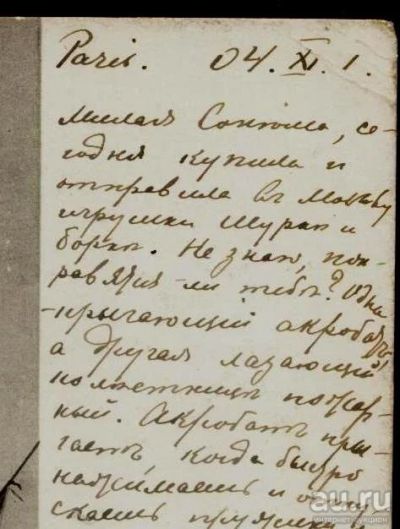 Paris. 04. XI. 1.
милая Сонюша, се-
годня купила и
отправила въ Москву
игрушки Шурки и
Борки. Не знаю, пон-
равятся-ли тебѣ? Одна
-прыгающій акробатъ,
а другая лазающій
по лѣстницѣ пожар-
ный. Акробатъ пры-
гаетъ когда быстро
нажимаешь и
скаешь
au.ru
интернет-аукцион